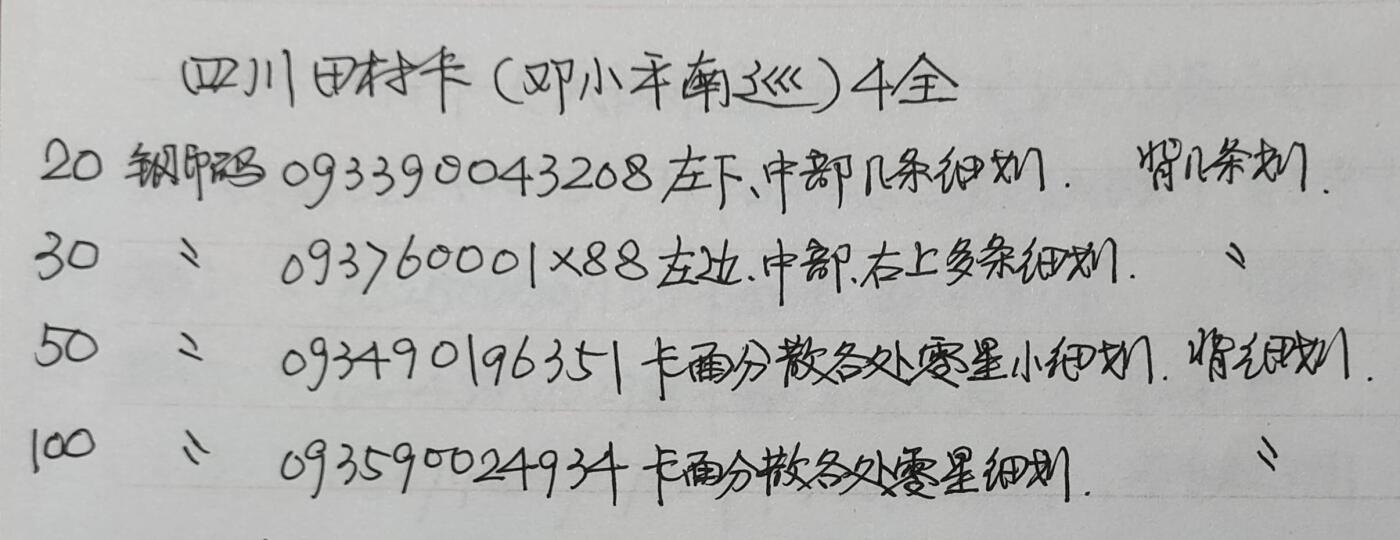 四川田村卡(邓小平南巡)4全
20 钢印码 093390043208 左下、中部几条细划. 背几条划.
30 〃 093760001X88 左边.中部.右上多条细划. 〃
50 〃 093490196351 卡面分散各处零星小细划. 背细划.
100 〃 093590024934 卡面分散各处零星细划. 〃